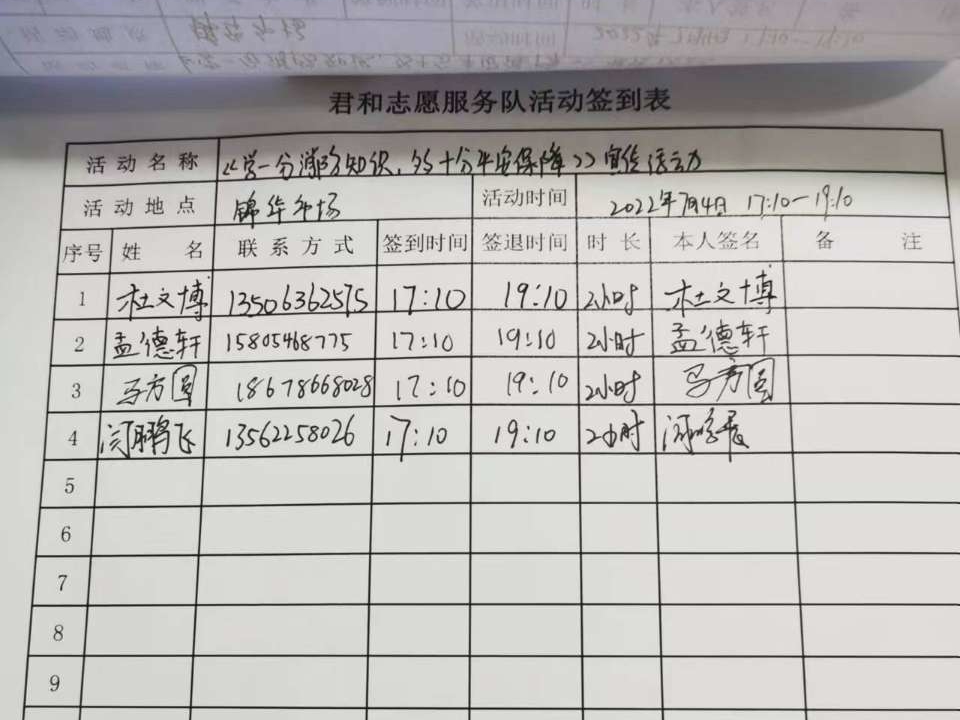 君和志愿服务队活动签到表
活动名称 《学一分消防知识,多十分平安保障》宣传活动
活动地点 锦华市场 活动时间 2022年7月4日 17:10-19:10
序号 姓 名 联系方式 签到时间 签退时间 时长 本人签名 备 注
1 杜文博 13506362575 17:10 19:10 2小时 杜文博
2 孟德轩 15805468775 17:10 19:10 2小时 孟德轩
3 马方圆 18678668028 17:10 19:10 2小时 马方圆
4 闫鹏飞 13562258026 17:10 19:10 2小时
5
6
7
8
9